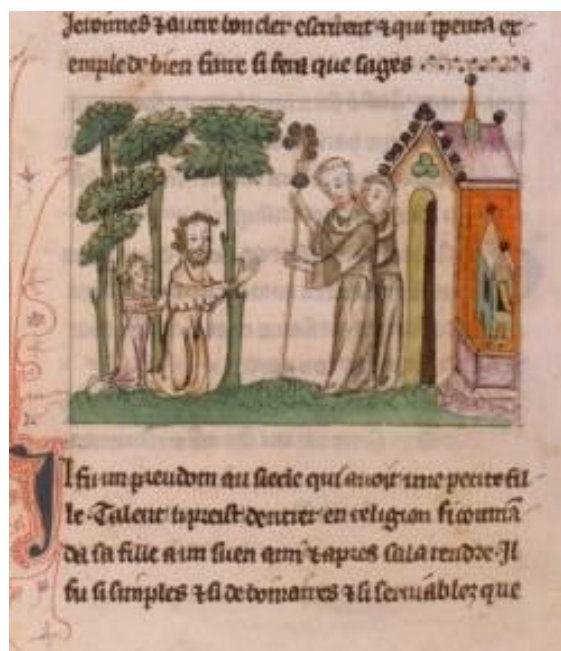 Jeroimes ⁊ autre bon clerc escrivent ⁊ qui prenra ex-
emple de bien faire si fera que sages
Il fu un preudom au siecle qui avoit une petite fil-
le. Talent li prist dentrer en religion si comma͂
da sa fille a un suen ami ⁊ apres sala rendre. Il
fu si simples ⁊ si debonaires ⁊ si servables que